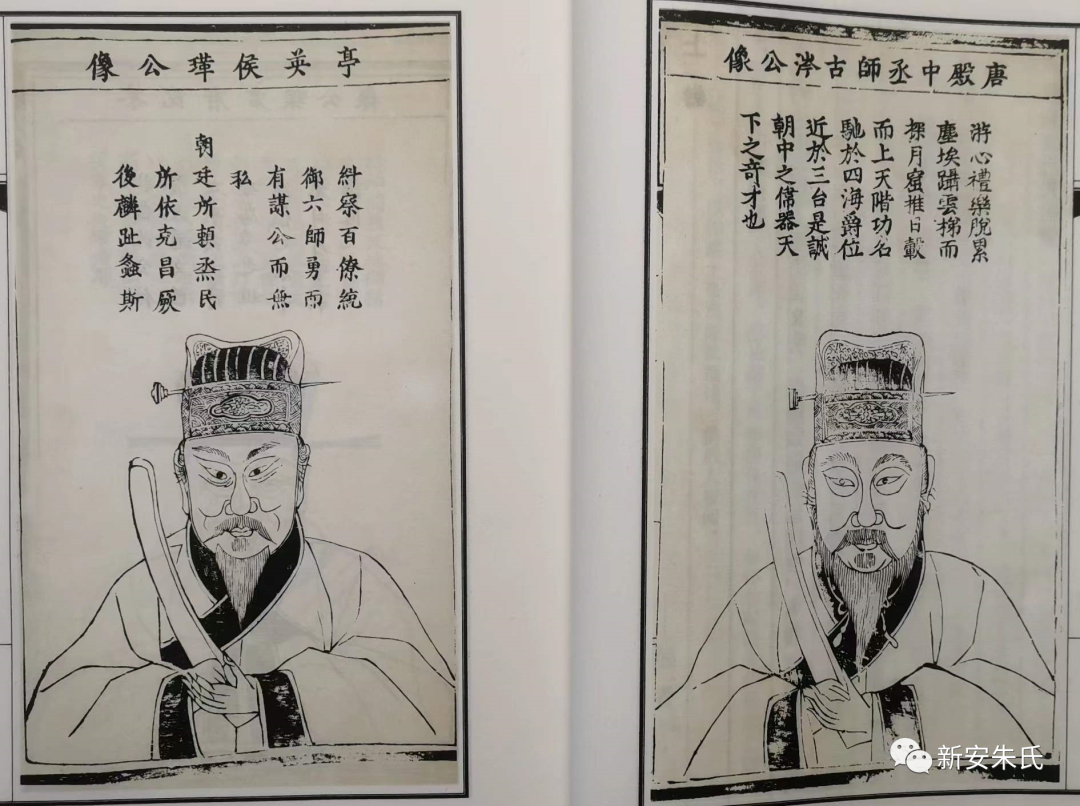 唐殿中丞師古涔公像
游心禮樂脫累
塵埃躡雲梯而
探月窟推日轂
而上天階功名
馳於四海爵位
近於三台是誠
朝中之偹器天
下之竒才也
亭英侯瑋公像
糾察百僚統
御六師勇而
有謀公而無
私
朝廷所頼烝民
所依克昌厥
後麟趾螽斯
新安朱氏